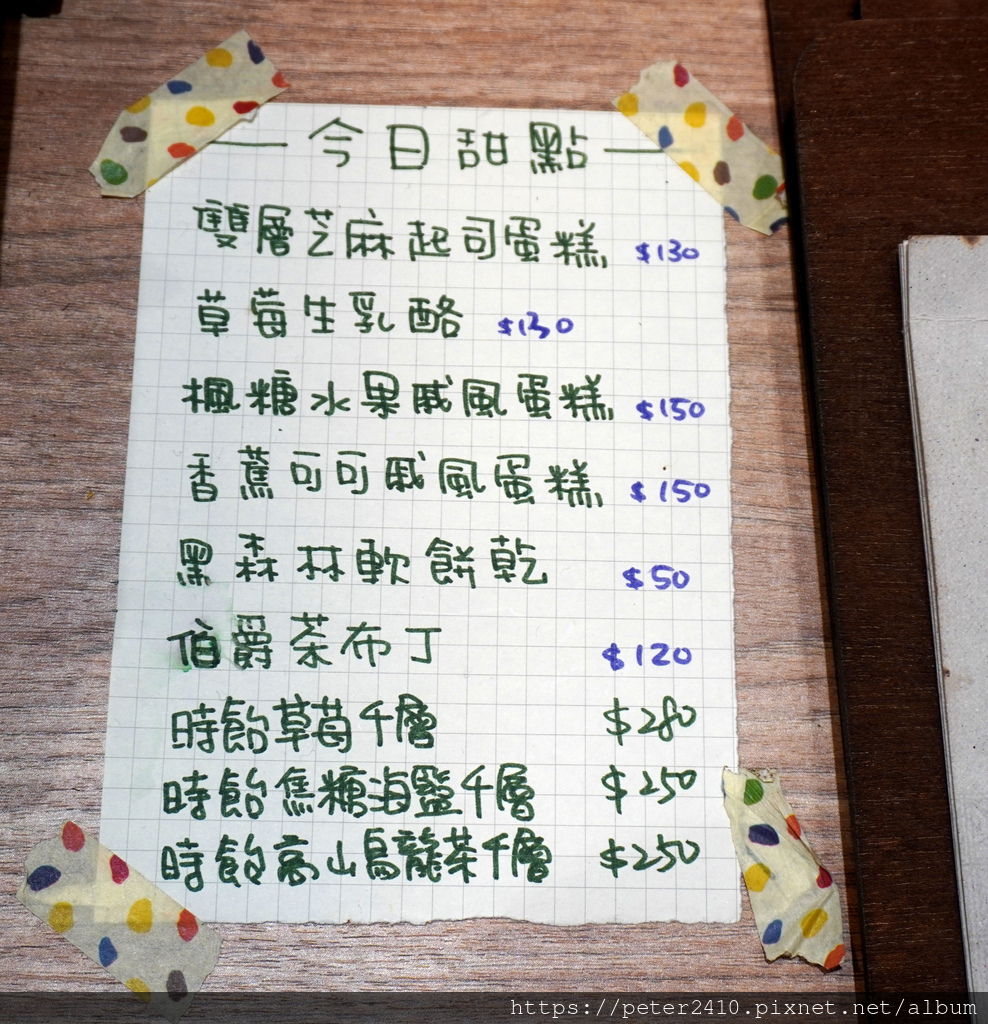 今日甜點
雙層芝麻起司蛋糕 $130
草莓生乳酪 $130
楓糖水果戚風蛋糕 $150
香蕉可可戚風蛋糕 $150
黑森林軟餅乾 $50
伯爵茶布丁 $120
時飴草莓千層 $280
時飴焦糖海鹽千層 $250
時飴高山烏龍茶千層 $250
https://peter2410.pixnet.net/album